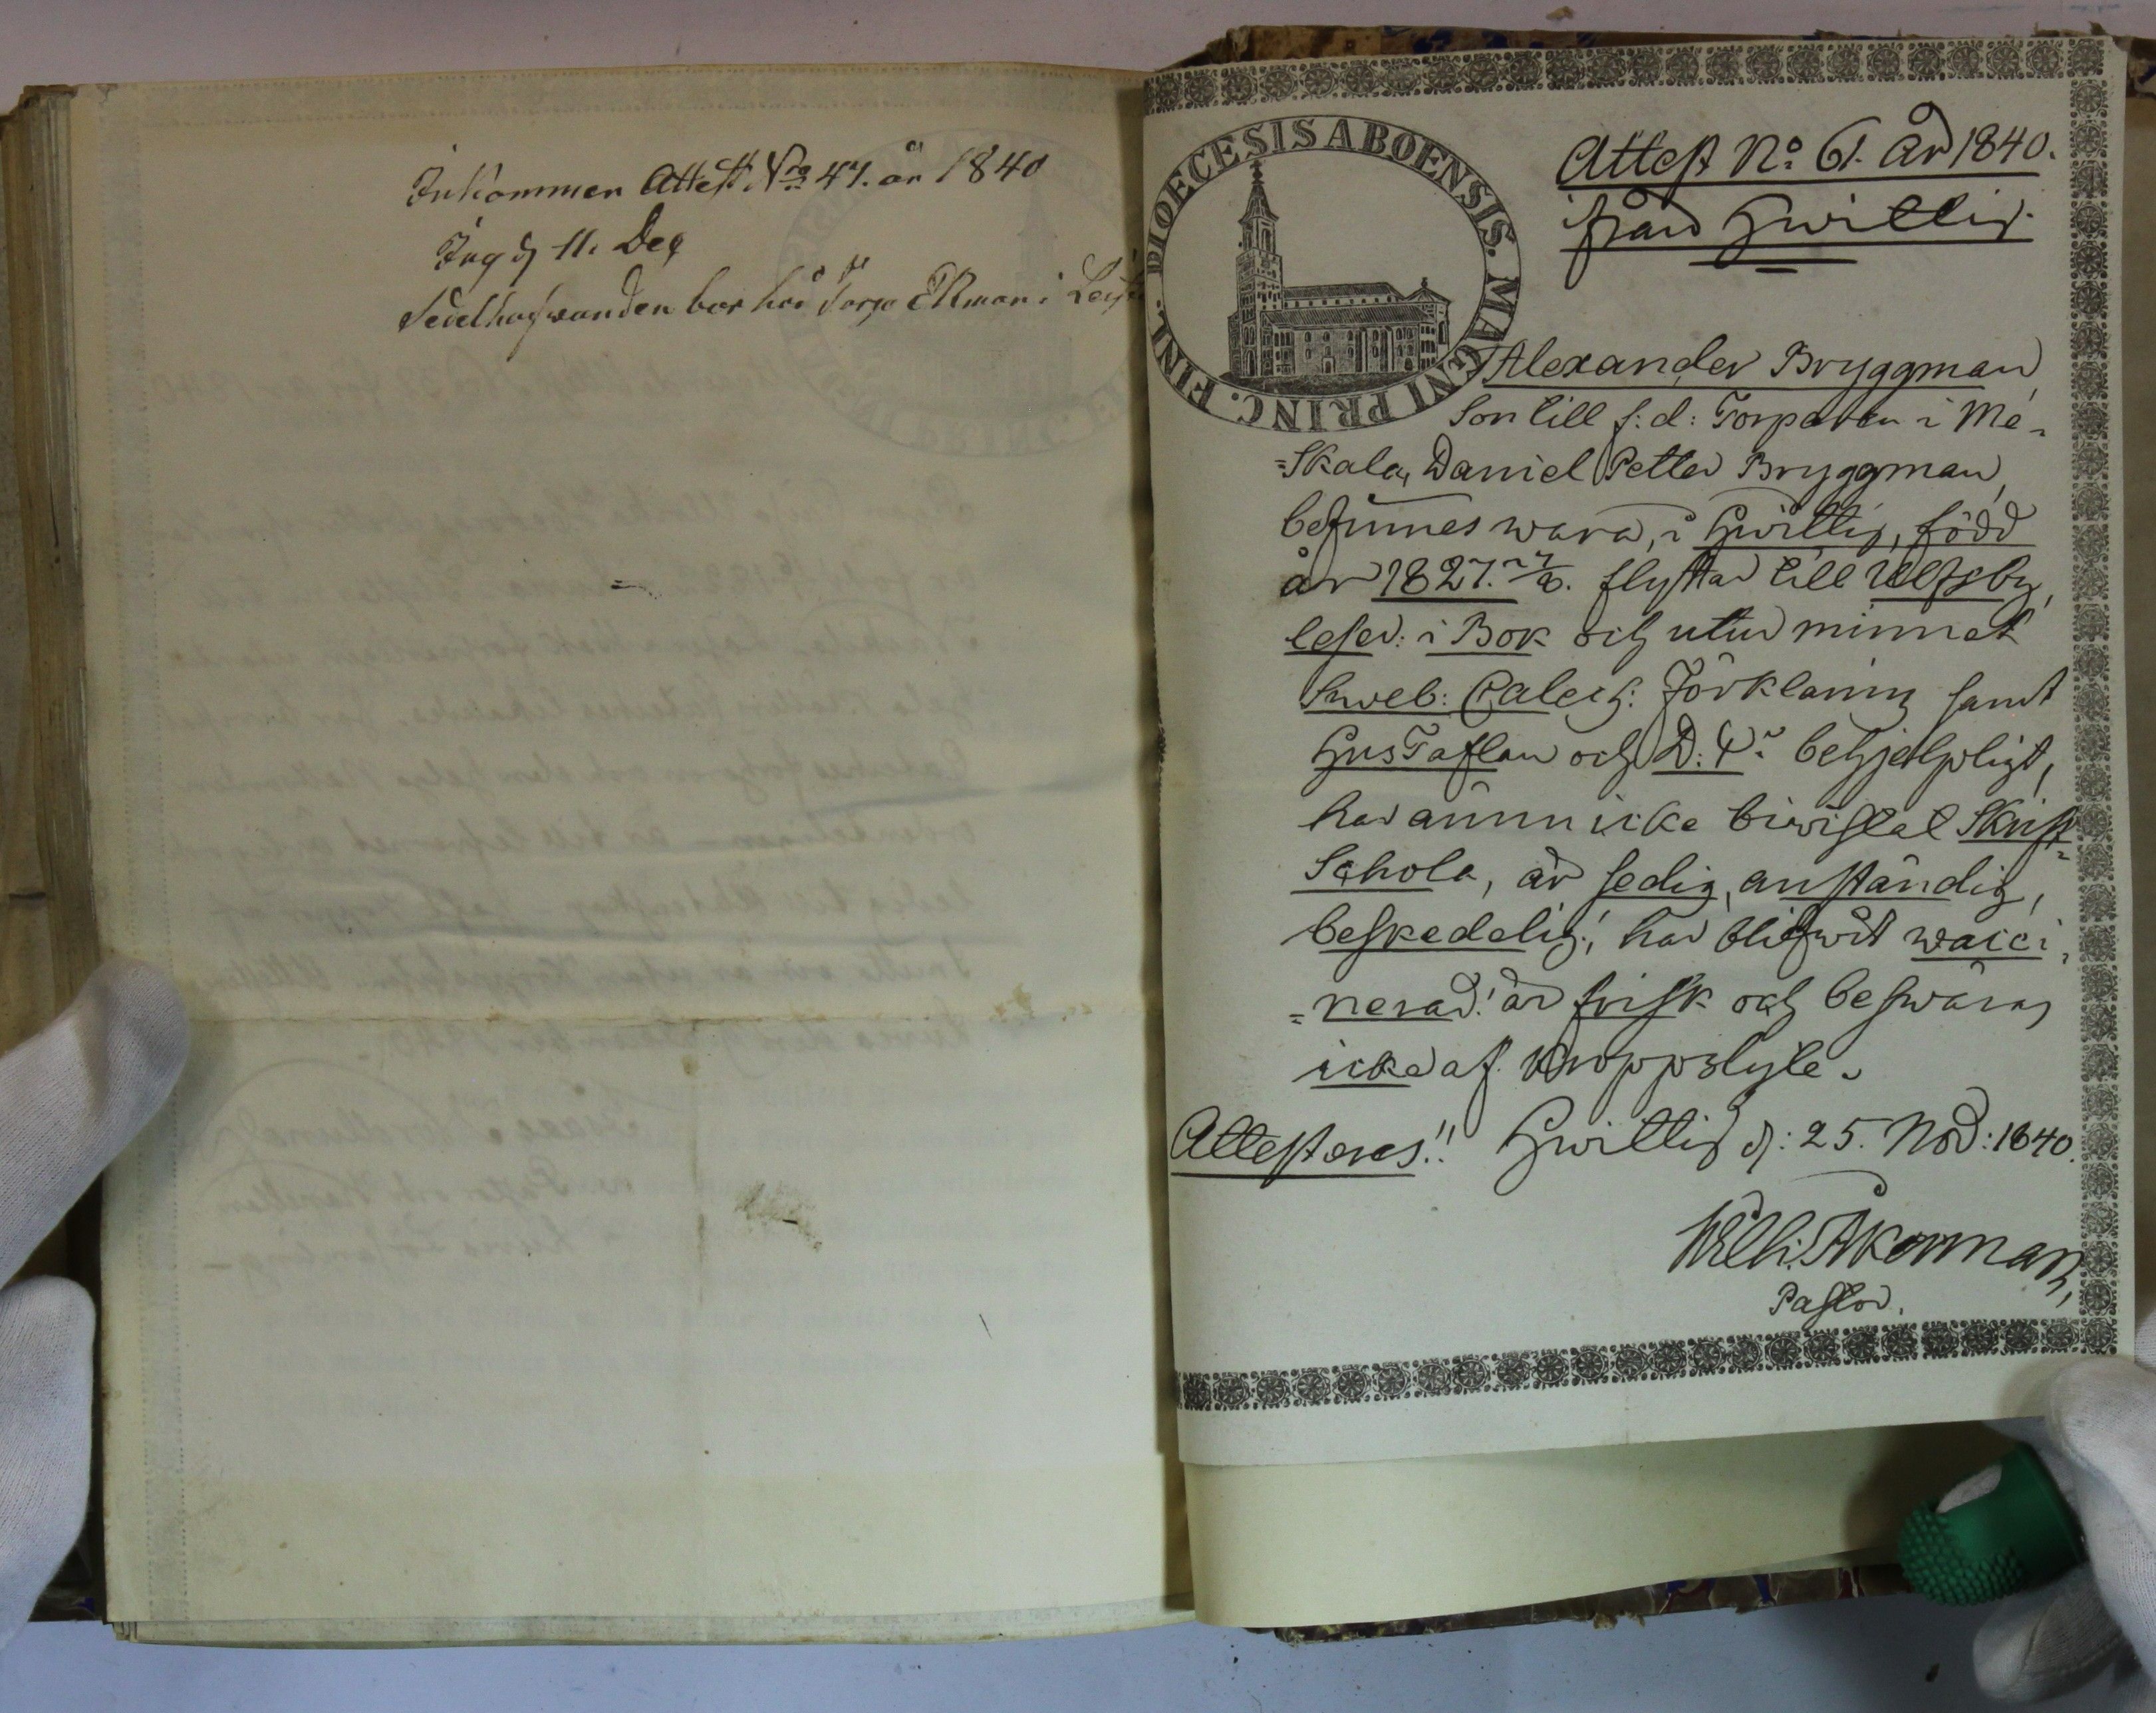 Inkommen Attest Nro 47. år 1840
Ing d 11. Dec
Sedelhafwanden bor hos Torp Ekman i
DIOECESIS ABOENSIS. MAGNI PRINC. FINL.
Attest No 61. År 1840.
ifrån Hwittis.
Alexander Bryggman,
Son till f: d: Torparen i Me-
=Skala, Daniel Petter Bryggman,
befinnes wara, i Hwittis, född
år 1827. flyttar till Ulfsby,
leser: i Bok och utur minnet
Sweb: Catech: Förklaring samt
Hustaflan och D: Ψr behjelpligt,
har ännu icke biwistat Skrift=
Schola, är sedig, anständig,
beskedelig; har blifwit wacci-
=nerad! är frisk och beswäras
icke af kroppslyte.
Attesteras!! Hwittis d: 25. Nov: 1840.
Wilh: Åkerman,
Pastor.